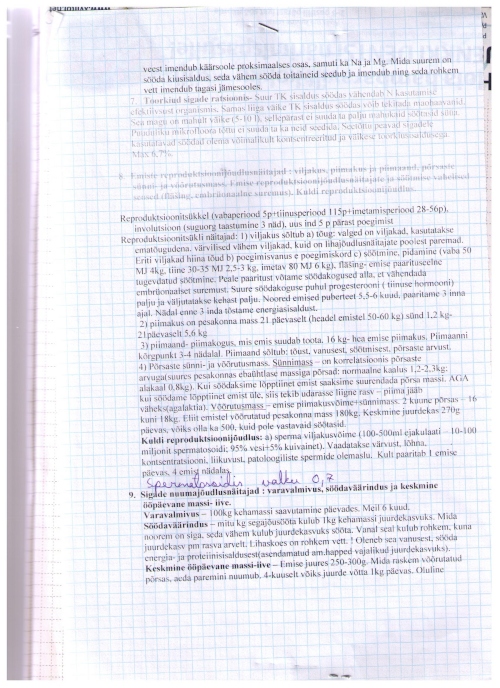 veest imendub käärsoole proksimaalses osas, samuti ka Na ja Mg. Mida suurem on
sööda kiusisaldus, seda vähem sööda toitaineid seedub ja imendub ning seda rohkem
vett imendub tagasi jämesooles.
7. Toorkiud sigade ratsioonis- Suur TK sisaldus söödas vähendab N kasutamise
efektiivsust organismis. Samas liiga väike TK sisaldus söödas võib tekitada maohaavandi.
Sea magu on mahult väike (5-10 l), sellepärast ei suuda ta palju mahukaid söötasid süüa.
Puuduliku mikrofloora tõttu ei suuda ta ka neid seedida. Seetõttu peavad sigadele
kasutatavad söödad olema võimalikult kontsentreeritud ja väikese toorkiusisaldusega.
Max 6,7%.
8. Emiste reproduktsioonijõudlusnäitajad : viljakus, piimakus ja piimaand, põrsaste
sünni- ja võõrutusmass. Emise reproduktsioonijõudlusnäitajate ja söötmise vahelised
seosed (flasing, embrüonaalne suremus). Kuldi reproduktsioonijõudlus.
Reproduktsioonitsükkel (vabaperiood 5p+tiinusperiood 115p+imetamisperiood 28-56p),
involutsioon (suguorg taastumine 3 näd), uus ind 5 p pärast poegimist
Reproduktsioonitsükli näitajad: 1) viljakus sõltub a) tõug: valged on viljakad, kasutatakse
ematõugudena. värvilised vähem viljakad, kuid on lihajõudlusnäitajate poolest paremad.
Eriti viljakad hiina tõud b) poegimisvanus e poegimiskord c) söötmine, pidamine (vaba 50
MJ 4kg, tiine 30-35 MJ 2,5-3 kg, imetav 80 MJ 6 kg), fläsing- emise paarituseelne
tugevdatud söötmine. Peale paaritust võtame söödakogused alla, et vähendada
embrüonaalset suremust. Suure söödakoguse puhul progesterooni ( tiinuse hormooni)
palju ja väljutatakse kehast palju. Noored emised puberteet 5,5-6 kuud, paaritame 3 inna
ajal. Nädal enne 3 inda tõstame energiasisaldust.
2) piimakus on pesakonna mass 21 päevaselt (headel emistel 50-60 kg) sünd 1,2 kg-
21päevaselt 5,6 kg
3) piimaand- piimakogus, mis emis suudab toota, 16 kg- hea emise piimakus. Piimaanni
kõrgpunkt 3-4 nädalal. Piimaand sõltub: tõust, vanusest, söötmisest, põrsaste arvust.
4) Põrsaste sünni- ja võõrutusmass. Sünnimass – on korrelatsioonis põrsaste
arvuga(suures pesakonnas ebaühtlase massiga põrsad: normaalne kaalus 1,2-2,3kg;
alakaal 0,8kg). Kui söödaksime lõpptiinet emist saaksime suurendada põrsa massi. AGA
kui söödame lõpptiinet emist üle, siis tekib udarasse liigne rasv – piima jääb
väheks(agalaktia). Võõrutusmass – emise piimakusvõime+sünnimass. 2 kuune põrsas – 16
kuni 18kg. Eliit emistel võõrutatud pesakonna mass 180kg. Keskmine juurdekas 270g
päevas, võiks olla ka 500, kuid pole vastavaid söötasid.
Kuldi reproduktsioonijõudlus: a) sperma viljakusvõime (100-500ml ejakulaati – 10-100
miljonit spermatosoidi; 95% vesi+5% kuivainet). Vaadatakse värvust, lõhna,
kontsentratsiooni, liikuvust, patoloogiliste spermide olemaslu. Kult paaritab 1 emise
päevas, 4 emist nädalas
Spermatosoidis valku 0,7
9. Sigade nuumajõudlusnäitajad : varavalmivus, söödaväärindus ja keskmine
ööpäevane massi- iive.
Varavalmivus – 100kg kehamassi saavutamine päevades. Meil 6 kuud.
Söödaväärindus – mitu kg segajõusööta kulub 1kg kehamassi juurdekasvuks. Mida
noorem on siga, seda vähem kulub juurdekasvuks sööta. Vanal seal kulub rohkem, kuna
juurdekasv pm rasva arvelt. Lihaskoes on rohkem vett. ! Oleneb sea vanusest, sööda
energia- ja proteiinisisaldusest(asendamatud am.happed vajalikud juurdekasvuks).
Keskmine ööpäevane massi-iive – Emise juures 250-300g. Mida raskem võõrutatud
põrsas, seda paremini nuumub. 4-kuuselt võiks juurde võtta 1kg päevas. Oluline